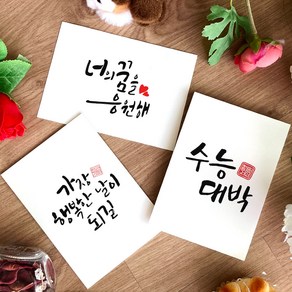 너의 꿈을
응원해
수능
대박
가장
행복한 날이
되길